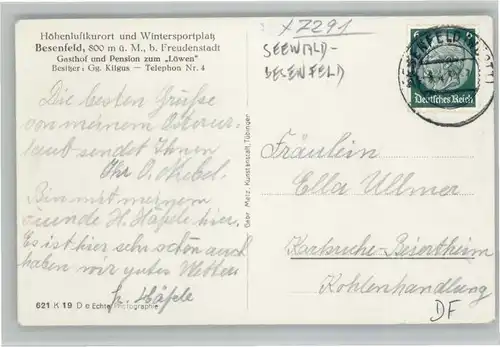 Höhenluftkurort und Wintersportplatz
Besenfeld, 800 m ü. M., b. Freudenstadt
Gasthof und Pension zum „Löwen"
Besitzer: Gg. Kilgus — Telephon Nr. 4
x7291
SEEWALD-
BESENFELD
6 6
Deutsches Reich
BESENFELD
Die besten Grüsse
von meinem Osterur-
laub sendet Ihnen
Ihr O. Kebel.
Bin mit meinem
Freunde H. Häfele hier.
Es ist hier sehr schön auch
haben wir gutes Wetter.
Häfele
Gebr. Metz, Kunstanstalt, Tübingen
Fräulein
Ella Ullmer
Karlsruhe-Beiertheim
Kohlenhandlung
DF
621 K 19 D e Echte Photographie